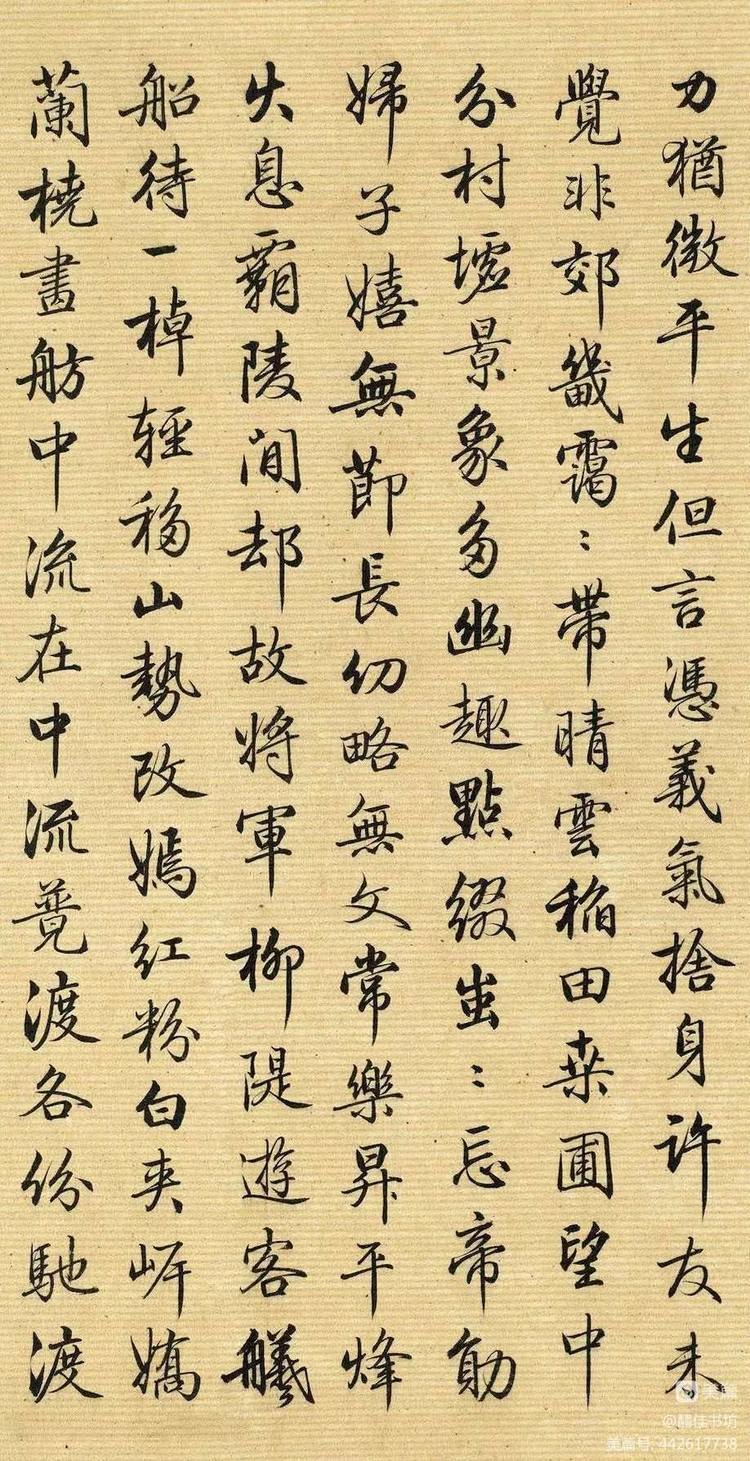 力猶微平生但言憑義氣捨身許友未
覺非郊畿靄〻帶晴雲稻田桒圃望中
分村墟景象多幽趣點綴蚩〻忘帝勛
婦子嬉無節長幼略無文常樂昇平烽
火息霸陵閒却故將軍柳隄遊客艤
船待一棹輕移山勢改嫣紅粉白夾岍嬌
蘭橈畫舫中流在中流競渡各份馳渡
美篇
@囍佳书坊
美篇号: 442617738